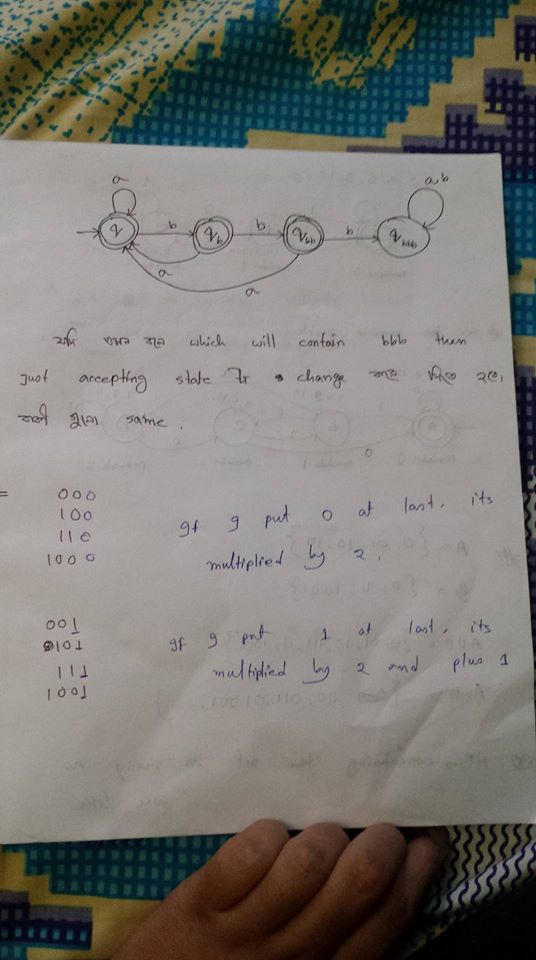 a
a,b
q b q_b b q_bb b q_bbb
a
a
যদি এমন হয় which will contain bbb then
just accepting state টা change করে দিলে হবে।
বাকী গুলা same.
= 000
100 If I put 0 at last, its
110 multiplied by 2.
1000
001
101 If I put 1 at last, its
111 multiplied by 2 and plus 1
1001